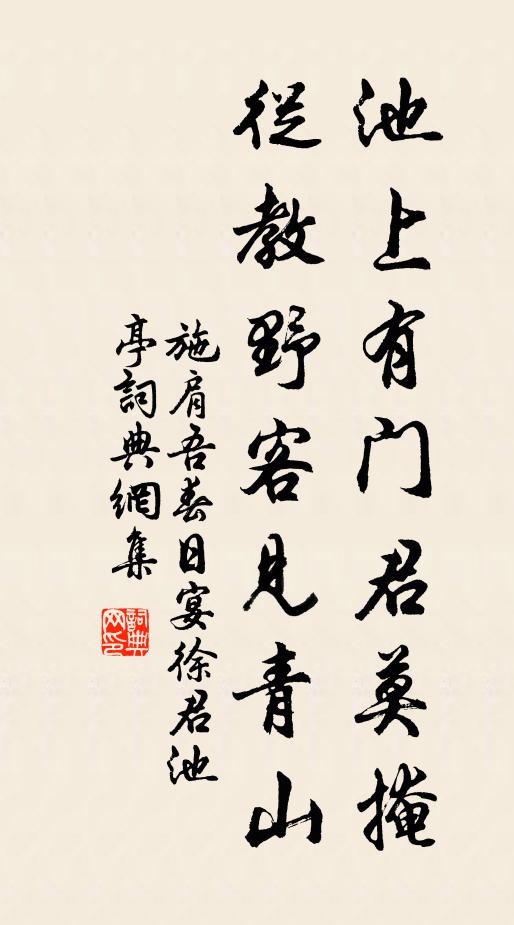 池上有門君莫掩
從教野客見青山
施肩吾春日宴徐君池
亭詞典網集
詞典
网印